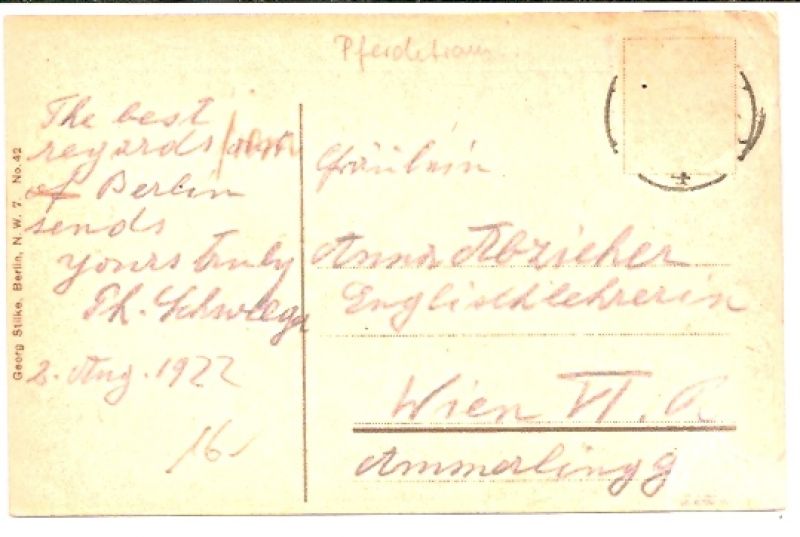 Pferdetram
The best
regards from
of Berlin
sends
yours truly
Th. Schweger
2. Aug. 1922
16.-
Fräulein
Anna Abzieher
Englischlehrerin
Wien VI.
Ammerlingg
Georg Stilke, Berlin, N. W. 7. No. 42